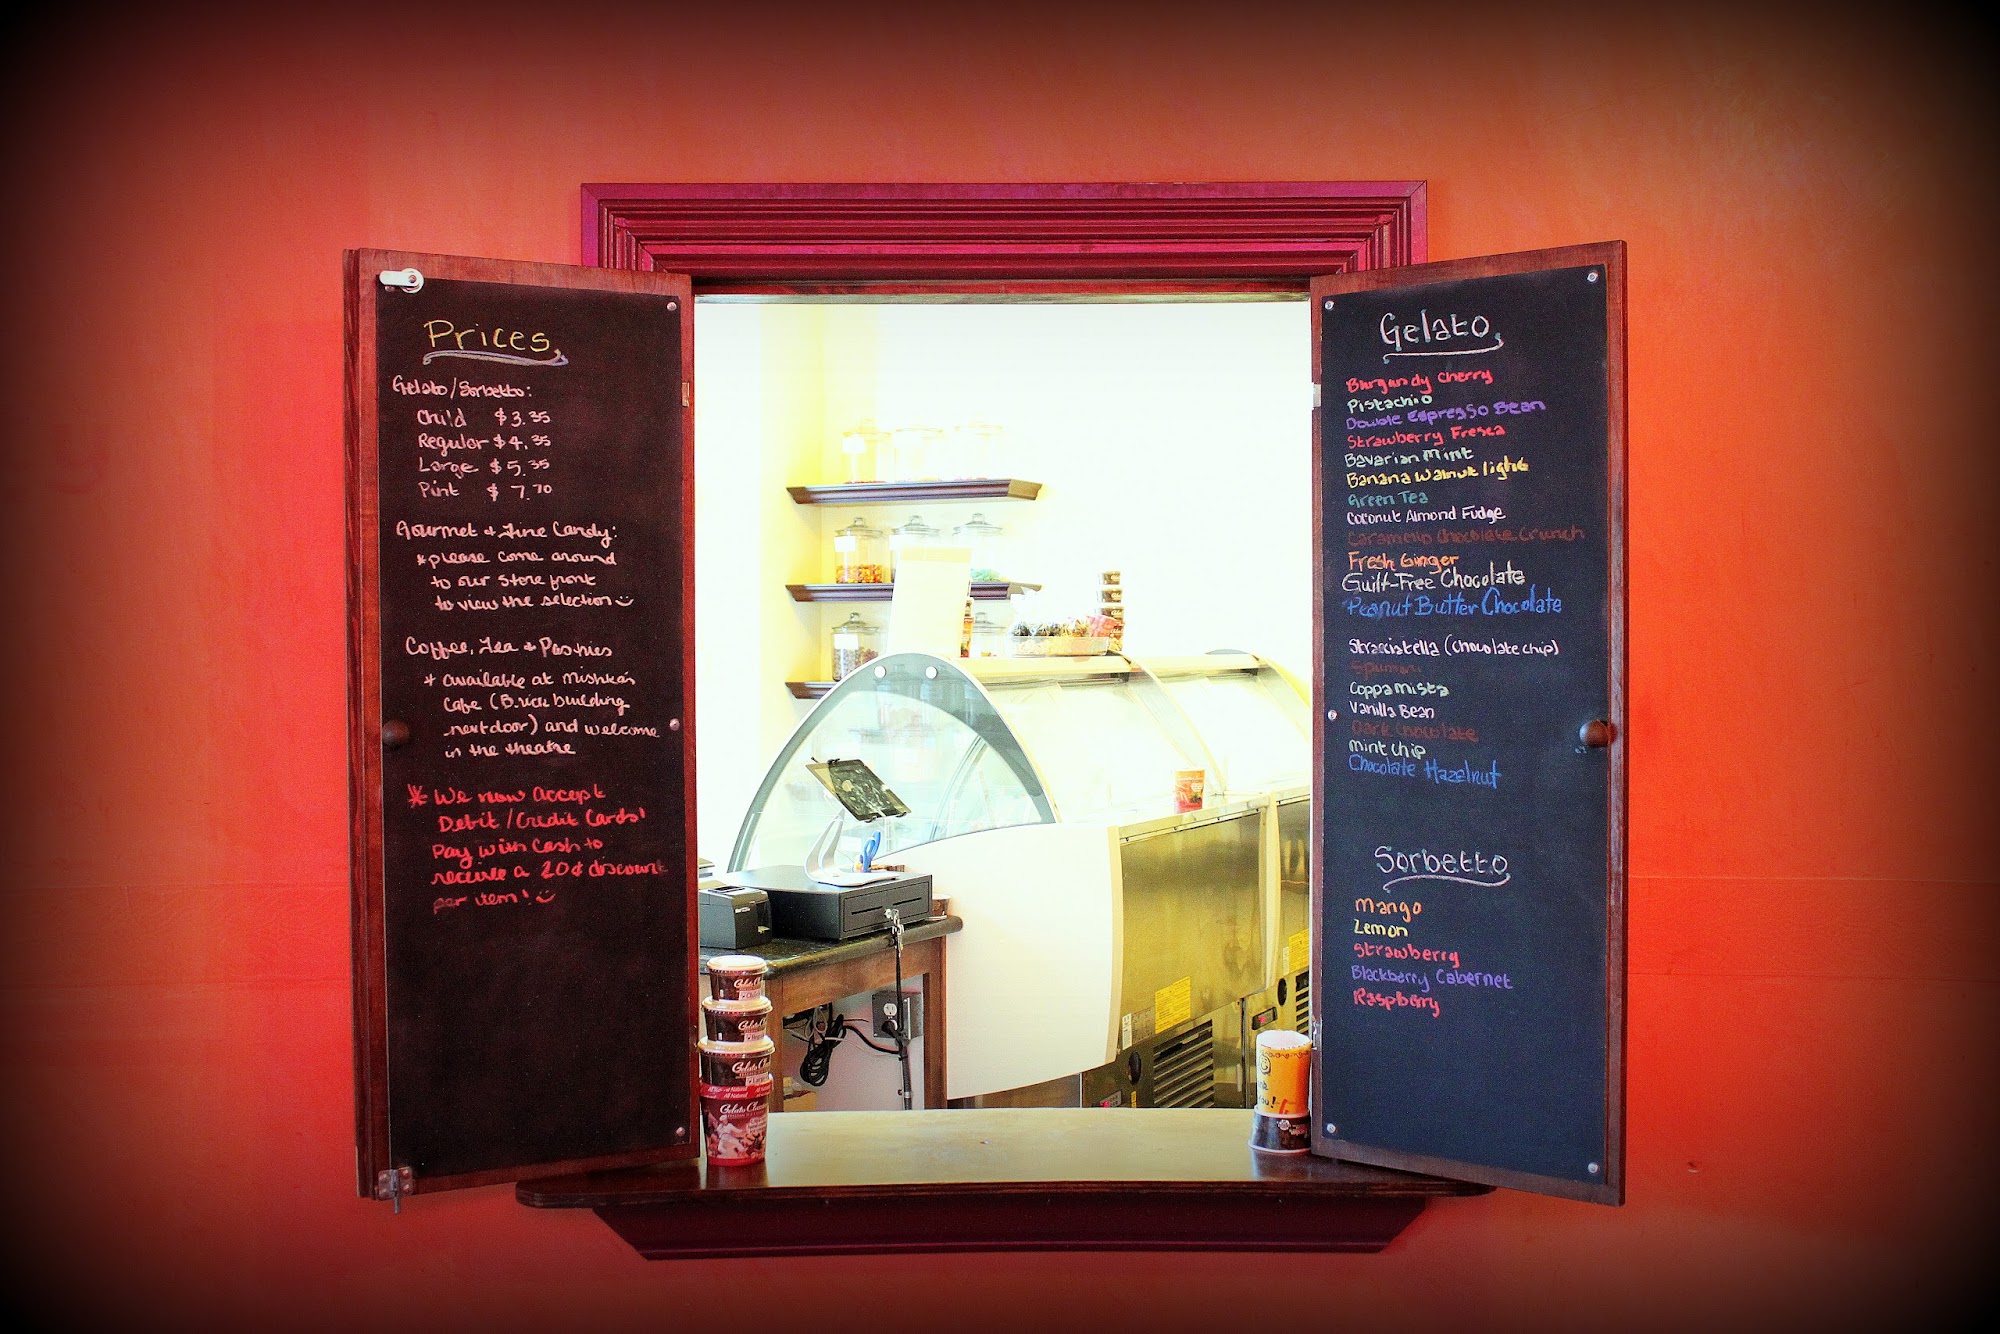 Prices
Gelato/Sorbetto:
Child $3.35
Regular $4.35
Large $5.35
Pint $7.70
Gourmet & Fine Candy:
*please come around
to our store front
to view the selection
Coffee, Tea & Pastries
* available at mishka's
Cafe (Brick building
next door) and welcome
in the theatre
* We now accept
Debit/Credit Cards!
Pay with Cash to
receive a 20¢ discount
per item!
Gelato
Burgandy Cherry
Pistachio
Double Espresso Bean
Strawberry Fresca
Bavarian Mint
Banana Walnut light
Green Tea
Coconut Almond Fudge
Caramello Chocolate Crunch
Fresh Ginger
Guilt-Free Chocolate
Peanut Butter Chocolate
Stracciatella (chocolate chip)
Spumoni
Coppa Mista
Vanilla Bean
Dark Chocolate
mint chip
Chocolate Hazelnut
Sorbetto
Mango
Lemon
Strawberry
Blackberry Cabernet
Raspberry
All Natural
Gelato Classico
You!